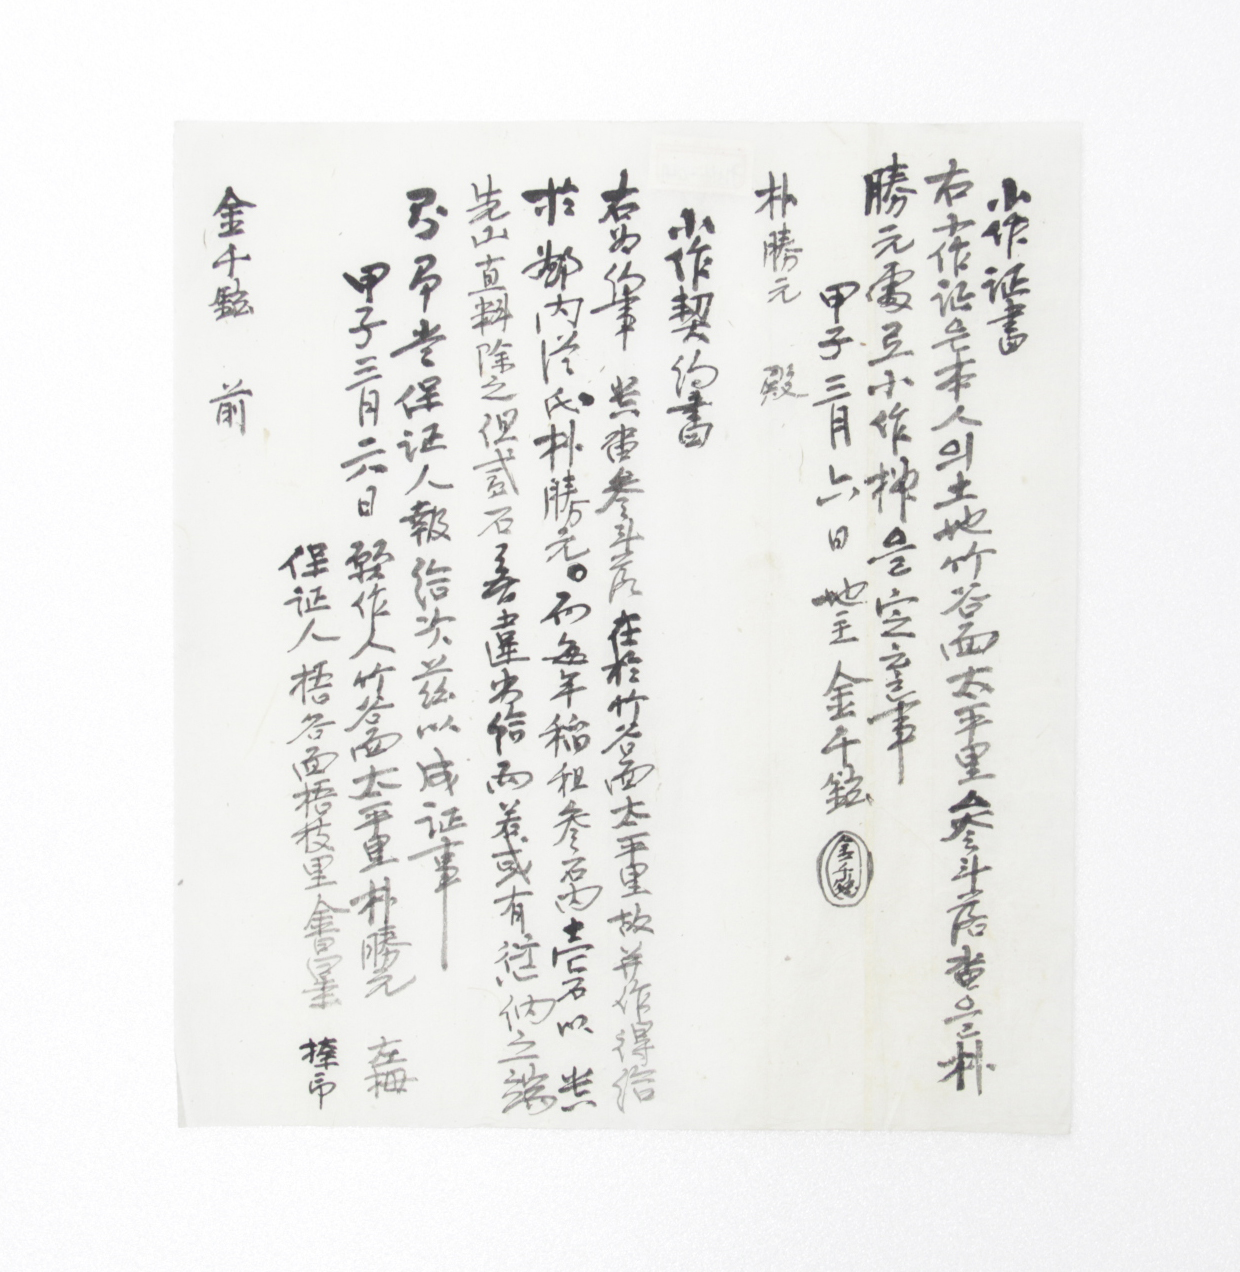 小作证書
右小作证은本人의土地竹谷面太平里 參斗落畓을朴
勝元處로小作權을定意事
甲子三月六日 地主 金千鉉
金千鉉
朴勝元 殿
小作契約書
右爲約事 畓參斗落 在於竹谷面太平里故 幷作得給
於 鄕內 朴勝元 而每年稻租參石內壹石以
先山直料除之但貳石 無違出給而若或有 納之端
當保证人報給次玆以成证事
甲子三月六日 作人竹谷面太平里 朴勝元 左拇
保证人 梧谷面梧枝里 金 捺印
金千鉉 前